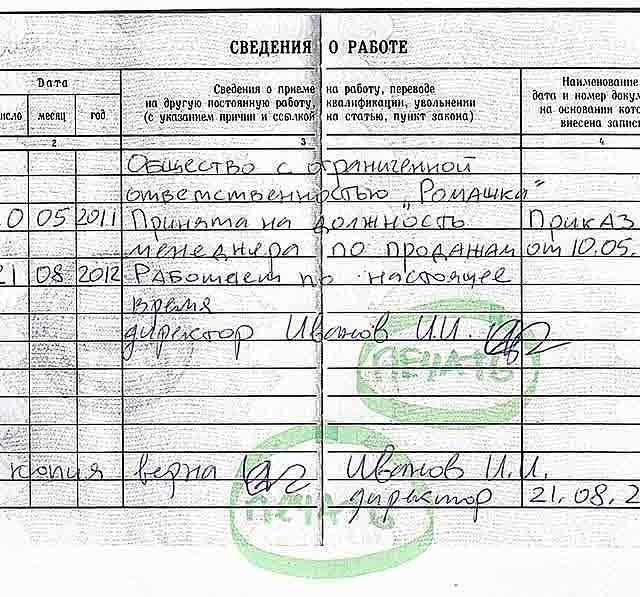 СВЕДЕНИЯ О РАБОТЕ
Дата
Сведения о приеме на работу, переводе
на другую постоянную работу, квалификации, увольнении
(с указанием причин и ссылкой на статью, пункт закона)
Наименование
дата и номер докум
на основании кото
внесена запис
исло месяц год
2 3 4
Общество с ограниченной
ответственностью „Ромашка"
0 05 2011 Принята на должность Приказ
менеджера по продажам от 10.05.
21 08 2012 Работает по настоящее
время
директор Иванов И.И.
ПЕЧАТЬ
копия верна Иванов И.И.
директор 21.08.2
ПЕЧАТЬ